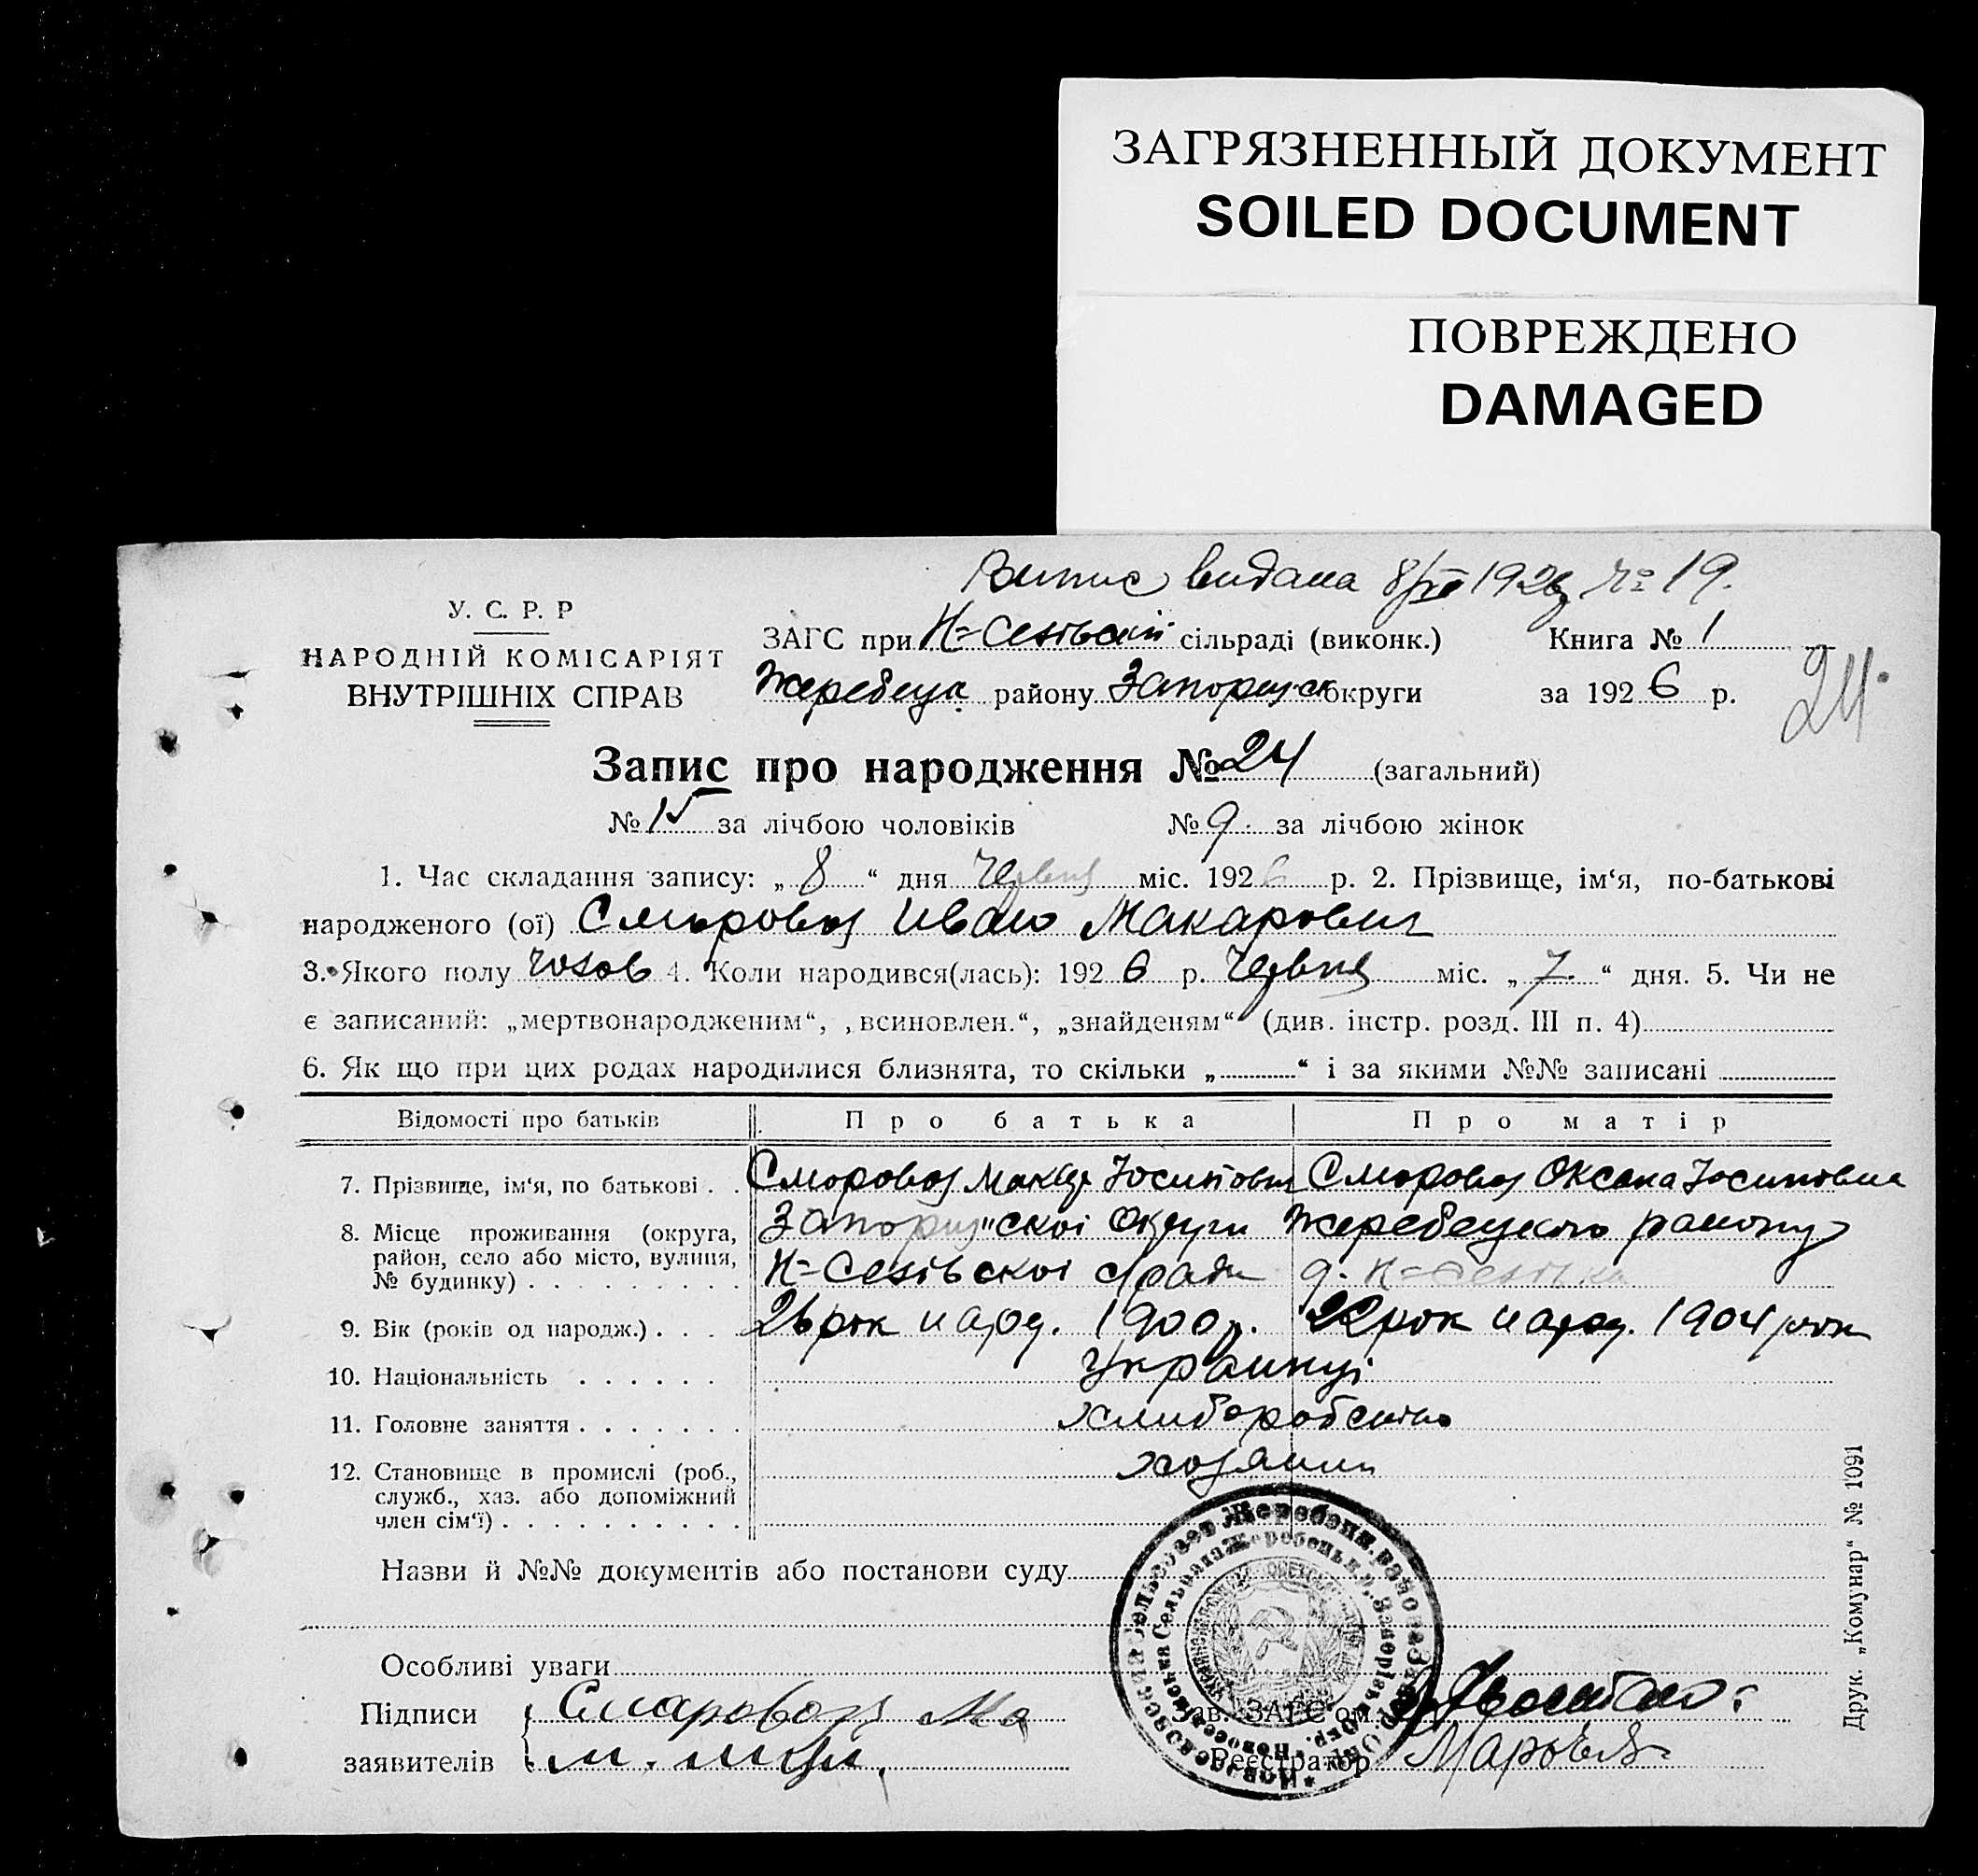 ЗАГРЯЗНЕННЫЙ ДОКУМЕНТ
SOILED DOCUMENT
ПОВРЕЖДЕНО
DAMAGED
Випис видана 8/VI 1926 № 19.
У. С. Р. Р
НАРОДНІЙ КОМІСАРІЯТ
ВНУТРІШНІХ СПРАВ
ЗАГС при сільраді (виконк.) Книга № 1
району округи за 1926 р.
24
Запис про народження № 24 (загальний)
№ 15 за лічбою чоловіків № 9. за лічбою жінок
1. Час складання запису: „ 8 “ дня Червня міс. 1926 р. 2. Прізвище, ім‘я, по-батькові
народженого (ої) Иван Макарович
3. Якого полу чолов 4. Коли народився(лась): 1926 р. Червня міс. „ 7. “ дня. 5. Чи не
є записаний: „мертвонародженим“, „всиновлен.“, „знайденям“ (див. інстр. розд. III п. 4)
6. Як що при цих родах народилися близнята, то скільки „ “ і за якими №№ записані
Відомості про батьків Про батька Про матір
7. Прізвище, ім‘я, по батькові . . Макар Йосипович Оксана Йосиповна
8. Місце проживання (округа, район, село або місто, вулиця, № будинку) . . . . . . . . . Округи Жеребецкого району
9. Вік (років од народж.) . . . . 26 рок народ. 1900 р. 22 рок народ. 1904 рок
10. Національність . . . . . . Украинці
11. Головне заняття . . . . . . . хлиборобство
12. Становище в промислі (роб., служб., хаз. або допоміжний член сім‘ї) . . . . . . . . . . хозяин
Назви й №№ документів або постанови суду
Особливі уваги
Підписи
заявителів
Зав. ЗАГС‘ом
Реєстратор
Друк. „Комунар“ № 1091